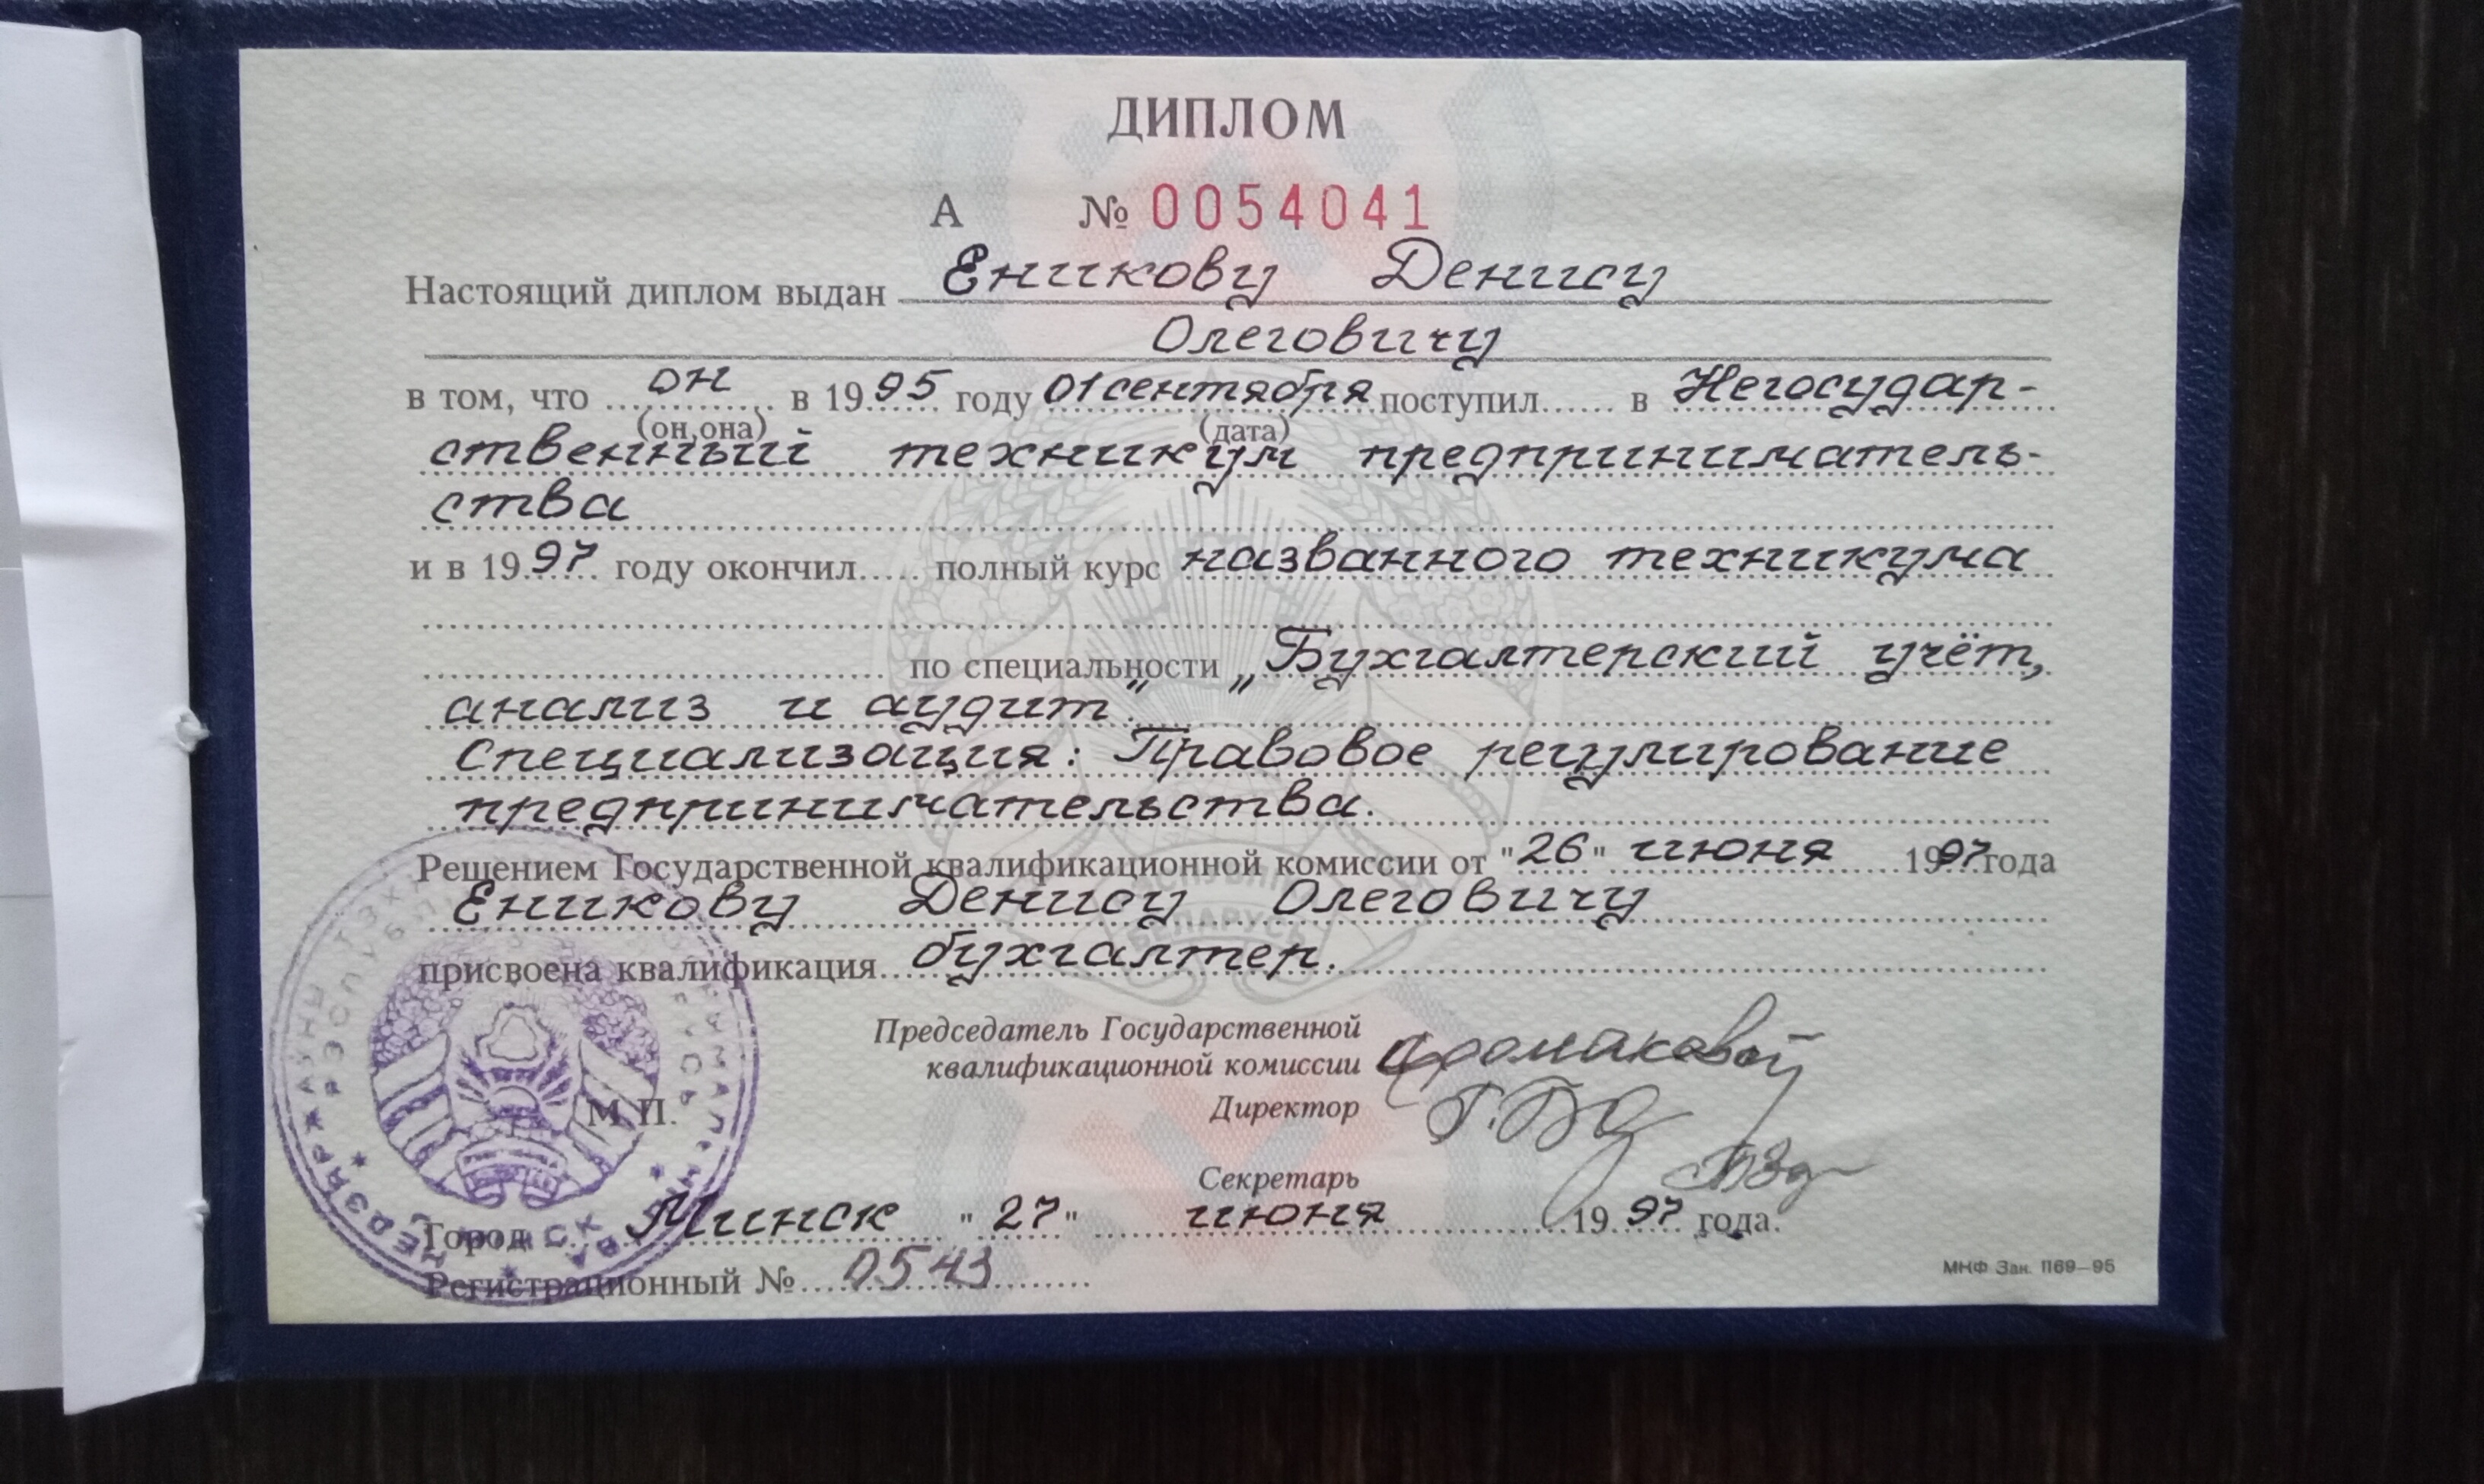 ДИПЛОМ
А № 0054041
Настоящий диплом выдан Еникову Денису
Олеговичу
в том, что он в 1995 году 01 сентября поступил...... в Негосудар-
(он, она) (дата)
ственный техникум предприниматель-
ства
и в 1997 году окончил..... полный курс названного техникума
по специальности „Бухгалтерский учёт,
анализ и аудит".
Специализация: Правовое регулирование
предпринимательства.
Решением Государственной квалификационной комиссии от "26" июня 1997 года
Еникову Денису Олеговичу
присвоена квалификация бухгалтер.
Председатель Государственной
квалификационной комиссии
Директор
М.П.
Секретарь
Город Минск "27" июня 1997 года.
Регистрационный № 0543
МНФ Зак. 1169—95